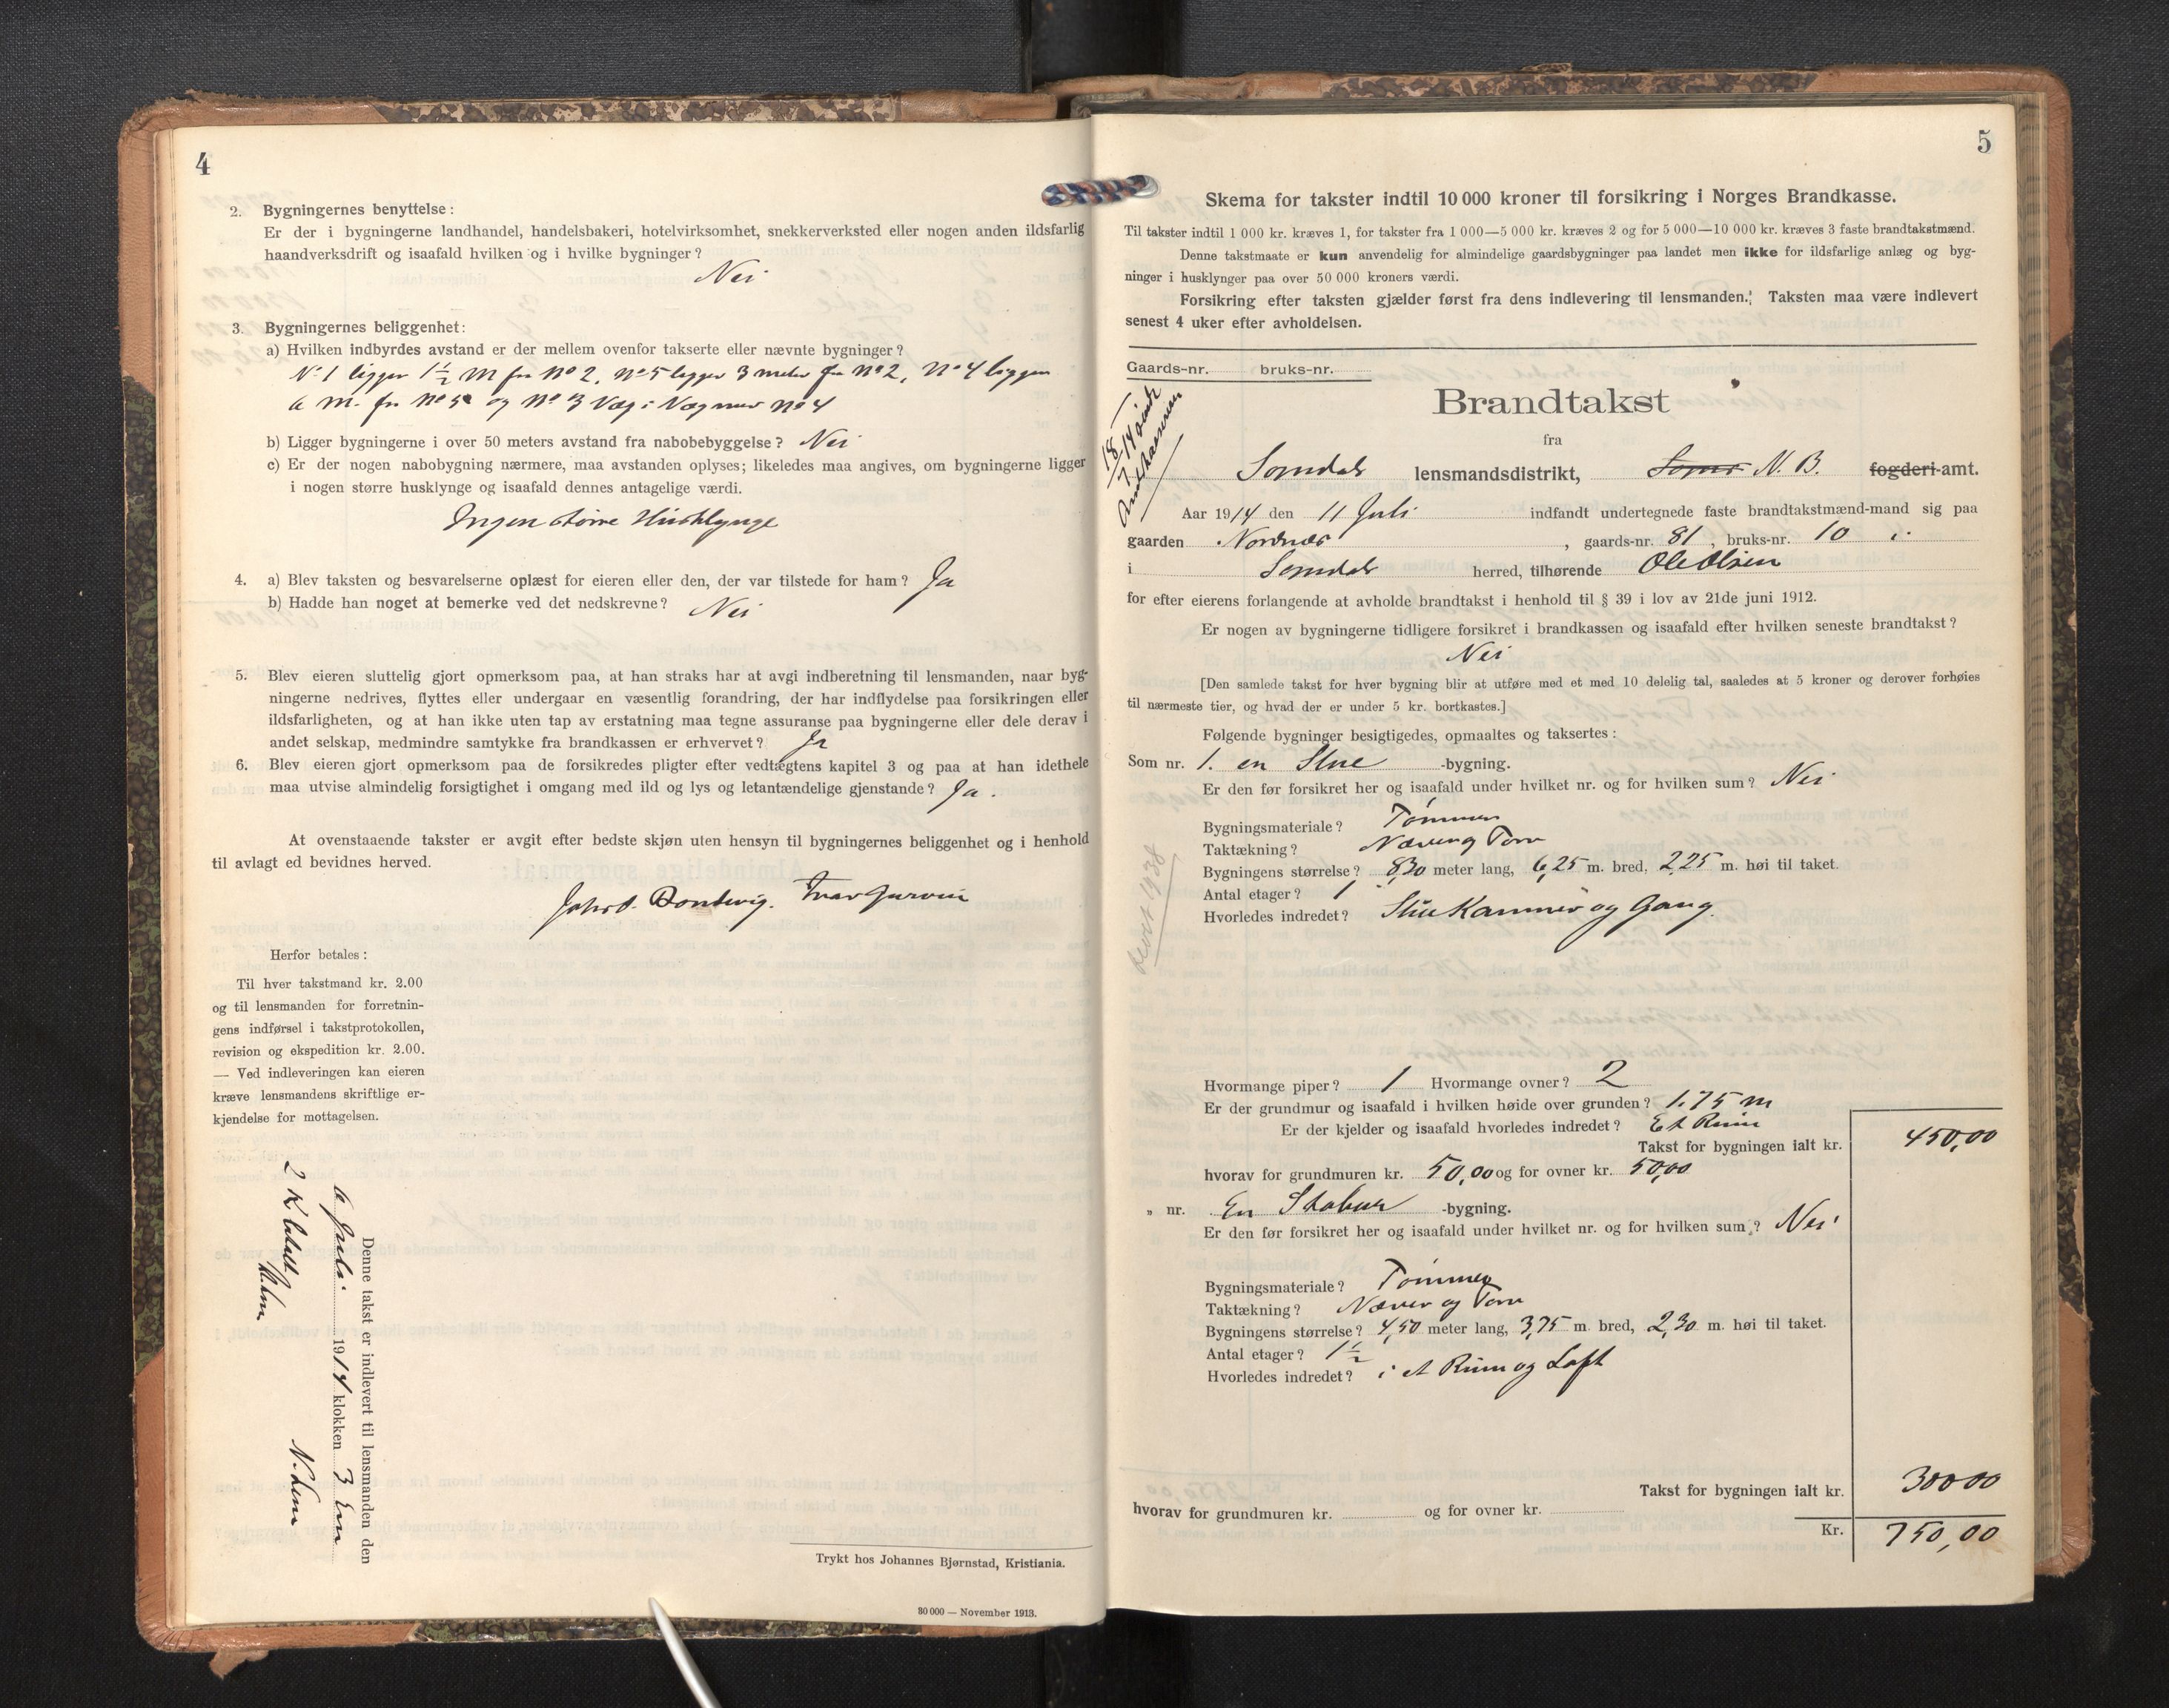 4
2. Bygningernes benyttelse:
Er der i bygningerne landhandel, handelsbakeri, hotelvirksomhet, snekkerverksted eller nogen anden ildsfarlig
haandverksdrift og isaafald hvilken og i hvilke bygninger?
Nei
3. Bygningernes beliggenhet:
a) Hvilken indbyrdes avstand er der mellem ovenfor takserte eller nævnte bygninger?
No 1 ligger 1½ m fra no 2, no 5 ligger 3 meter fra no 2, no 4 ligger
6 m. fra no 5 og no 3 Væg i Væg med no 4
b) Ligger bygningerne i over 50 meters avstand fra nabobebyggelse? Nei
c) Er der nogen nabobygning nærmere, maa avstanden oplyses; likeledes maa angives, om bygningerne ligger
i nogen større husklynge og isaafald dennes antagelige værdi.
Ingen større Husklynge
4. a) Blev taksten og besvarelserne oplæst for eieren eller den, der var tilstede for ham? Ja
b) Hadde han noget at bemerke ved det nedskrevne? Nei
5. Blev eieren sluttelig gjort opmerksom paa, at han straks har at avgi indberetning til lensmanden, naar byg-
ningerne nedrives, flyttes eller undergaar en væsentlig forandring, der har indflydelse paa forsikringen eller
ildsfarligheten, og at han ikke uten tap av erstatning maa tegne assuranse paa bygningerne eller dele derav i
andet selskap, medmindre samtykke fra brandkassen er erhvervet? Ja
6. Blev eieren gjort opmerksom paa de forsikredes pligter efter vedtægtens kapitel 3 og paa at han idethele
maa utvise almindelig forsigtighet i omgang med ild og lys og letantændelige gjenstande? Ja.
At ovenstaaende takster er avgit efter bedste skjøn uten hensyn til bygningernes beliggenhet og i henhold
til avlagt ed bevidnes herved.
Herfor betales:
Til hver takstmand kr. 2.00
og til lensmanden for forretnin-
gens indførsel i takstprotokollen,
revision og ekspedition kr. 2.00.
— Ved indleveringen kan eieren
kræve lensmandens skriftlige er-
kjendelse for mottagelsen.
Denne takst er indlevert til lensmanden den
6 Juli 1914 klokken 3 Em
2 Kr betalt
Trykt hos Johannes Bjørnstad, Kristiania.
30 000 — November 1913.
5
Skema for takster indtil 10 000 kroner til forsikring i Norges Brandkasse.
Til takster indtil 1 000 kr. kræves 1, for takster fra 1 000—5 000 kr. kræves 2 og for 5 000—10 000 kr. kræves 3 faste brandtakstmænd.
Denne takstmaate er kun anvendelig for almindelige gaardsbygninger paa landet men ikke for ildsfarlige anlæg og byg-
ninger i husklynger paa over 50 000 kroners værdi.
Forsikring efter taksten gjælder først fra dens indlevering til lensmanden. Taksten maa være indlevert
senest 4 uker efter avholdelsen.
Gaards-nr. bruks-nr.
Brandtakst
fra
Sogndals lensmandsdistrikt, N. B. fogderi-amt.
Aar 1914 den 11 Juli indfandt undertegnede faste brandtakstmænd-mand sig paa
gaarden Nordnæs, gaards-nr. 81, bruks-nr. 10 i
i Sogndals herred, tilhørende Ole Olsen
for efter eierens forlangende at avholde brandtakst i henhold til § 39 i lov av 21de juni 1912.
Er nogen av bygningerne tidligere forsikret i brandkassen og isaafald efter hvilken seneste brandtakst?
Nei
[Den samlede takst for hver bygning blir at utføre med et med 10 delelig tal, saaledes at 5 kroner og derover forhøies
til nærmeste tier, og hvad der er under 5 kr. bortkastes.]
Følgende bygninger besigtigedes, opmaaltes og taksertes:
Som nr. 1. en Stue -bygning.
Er den før forsikret her og isaafald under hvilket nr. og for hvilken sum? Nei
Bygningsmateriale? Tømmer
Taktækning? Næver og Torv
Bygningens størrelse? 8,30 meter lang, 6,25 m. bred, 2,25 m. høi til taket.
Antal etager? 1
Hvorledes indredet? Stue Kammer og Gang.
1938
Hvormange piper? 1 Hvormange ovner? 2
Er der grundmur og isaafald i hvilken høide over grunden? 1.75 m
Er der kjelder og isaafald hvorledes indredet? Et Rum
Takst for bygningen ialt kr. 450,00
hvorav for grundmuren kr. 50,00 og for ovner kr. 50,00
„ nr. En Stabur -bygning.
Er den før forsikret her og isaafald under hvilket nr. og for hvilken sum? Nei
Bygningsmateriale? Tømmer
Taktækning? Næver og Torv
Bygningens størrelse? 4,50 meter lang, 3,75 m. bred, 2,30 m. høi til taket.
Antal etager? 1½
Hvorledes indredet? i et Rum og Loft
Takst for bygningen ialt kr. 300 00
hvorav for grundmuren kr. og for ovner kr.
Kr. 750,00